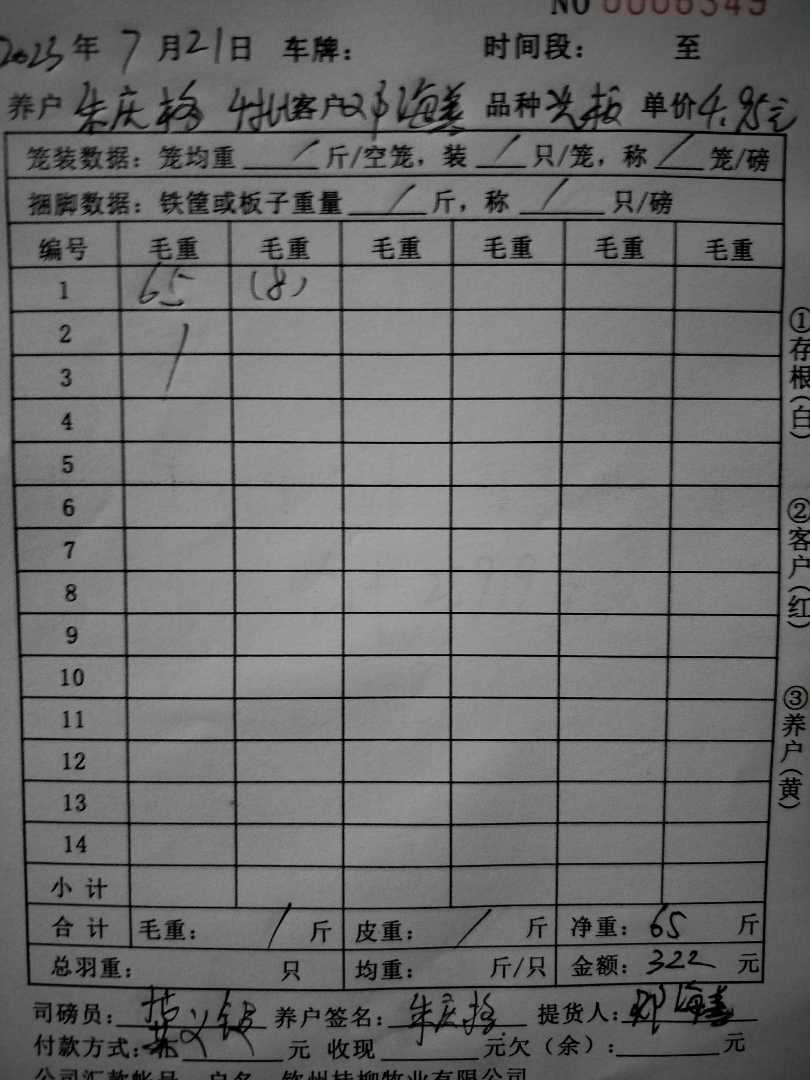 NO 0006349
2023年7月21日 车牌： 时间段： 至
养户 朱庆格 客户 邓海善 品种 单价4.95元
笼装数据：笼均重 / 斤/空笼，装 / 只/笼，称 / 笼/磅
捆脚数据：铁筐或板子重量 / 斤，称 / 只/磅
编号 毛重 毛重 毛重 毛重 毛重 毛重
1 65 (8)
2 /
3
4
5
6
7
8
9
10
11
12
13
14
小计
合计 毛重： / 斤 皮重： / 斤 净重：65 斤
总羽重： 只 均重： 斤/只 金额：322 元
司磅员： 养户签名：朱庆格 提货人：邓海善
付款方式： 元 收现 元欠（余）： 元
公司汇款帐号 户名 钦州桂柳牧业有限公司
①存根（白）
②客户（红）
③养户（黄）